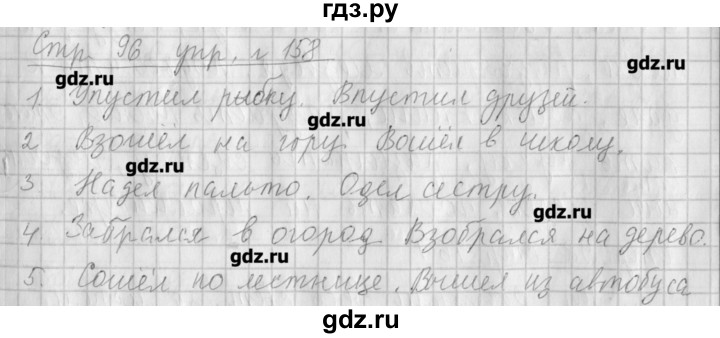 гдз.ру
Стр. 96 упр. 158
gdz.ru
gdz.ru
1. Упустил рыбку. Впустил друзей.
gdz.ru
2 Взошёл на гору. Вошёл в школу.
gdz.ru
3 Надел пальто. Одел сестру.
gdz.ru
4 Забрался в огород Взобрался на дерево.
gdz.ru
5. Сошёл по лестнице. Вышел из автобуса
gdz.ru